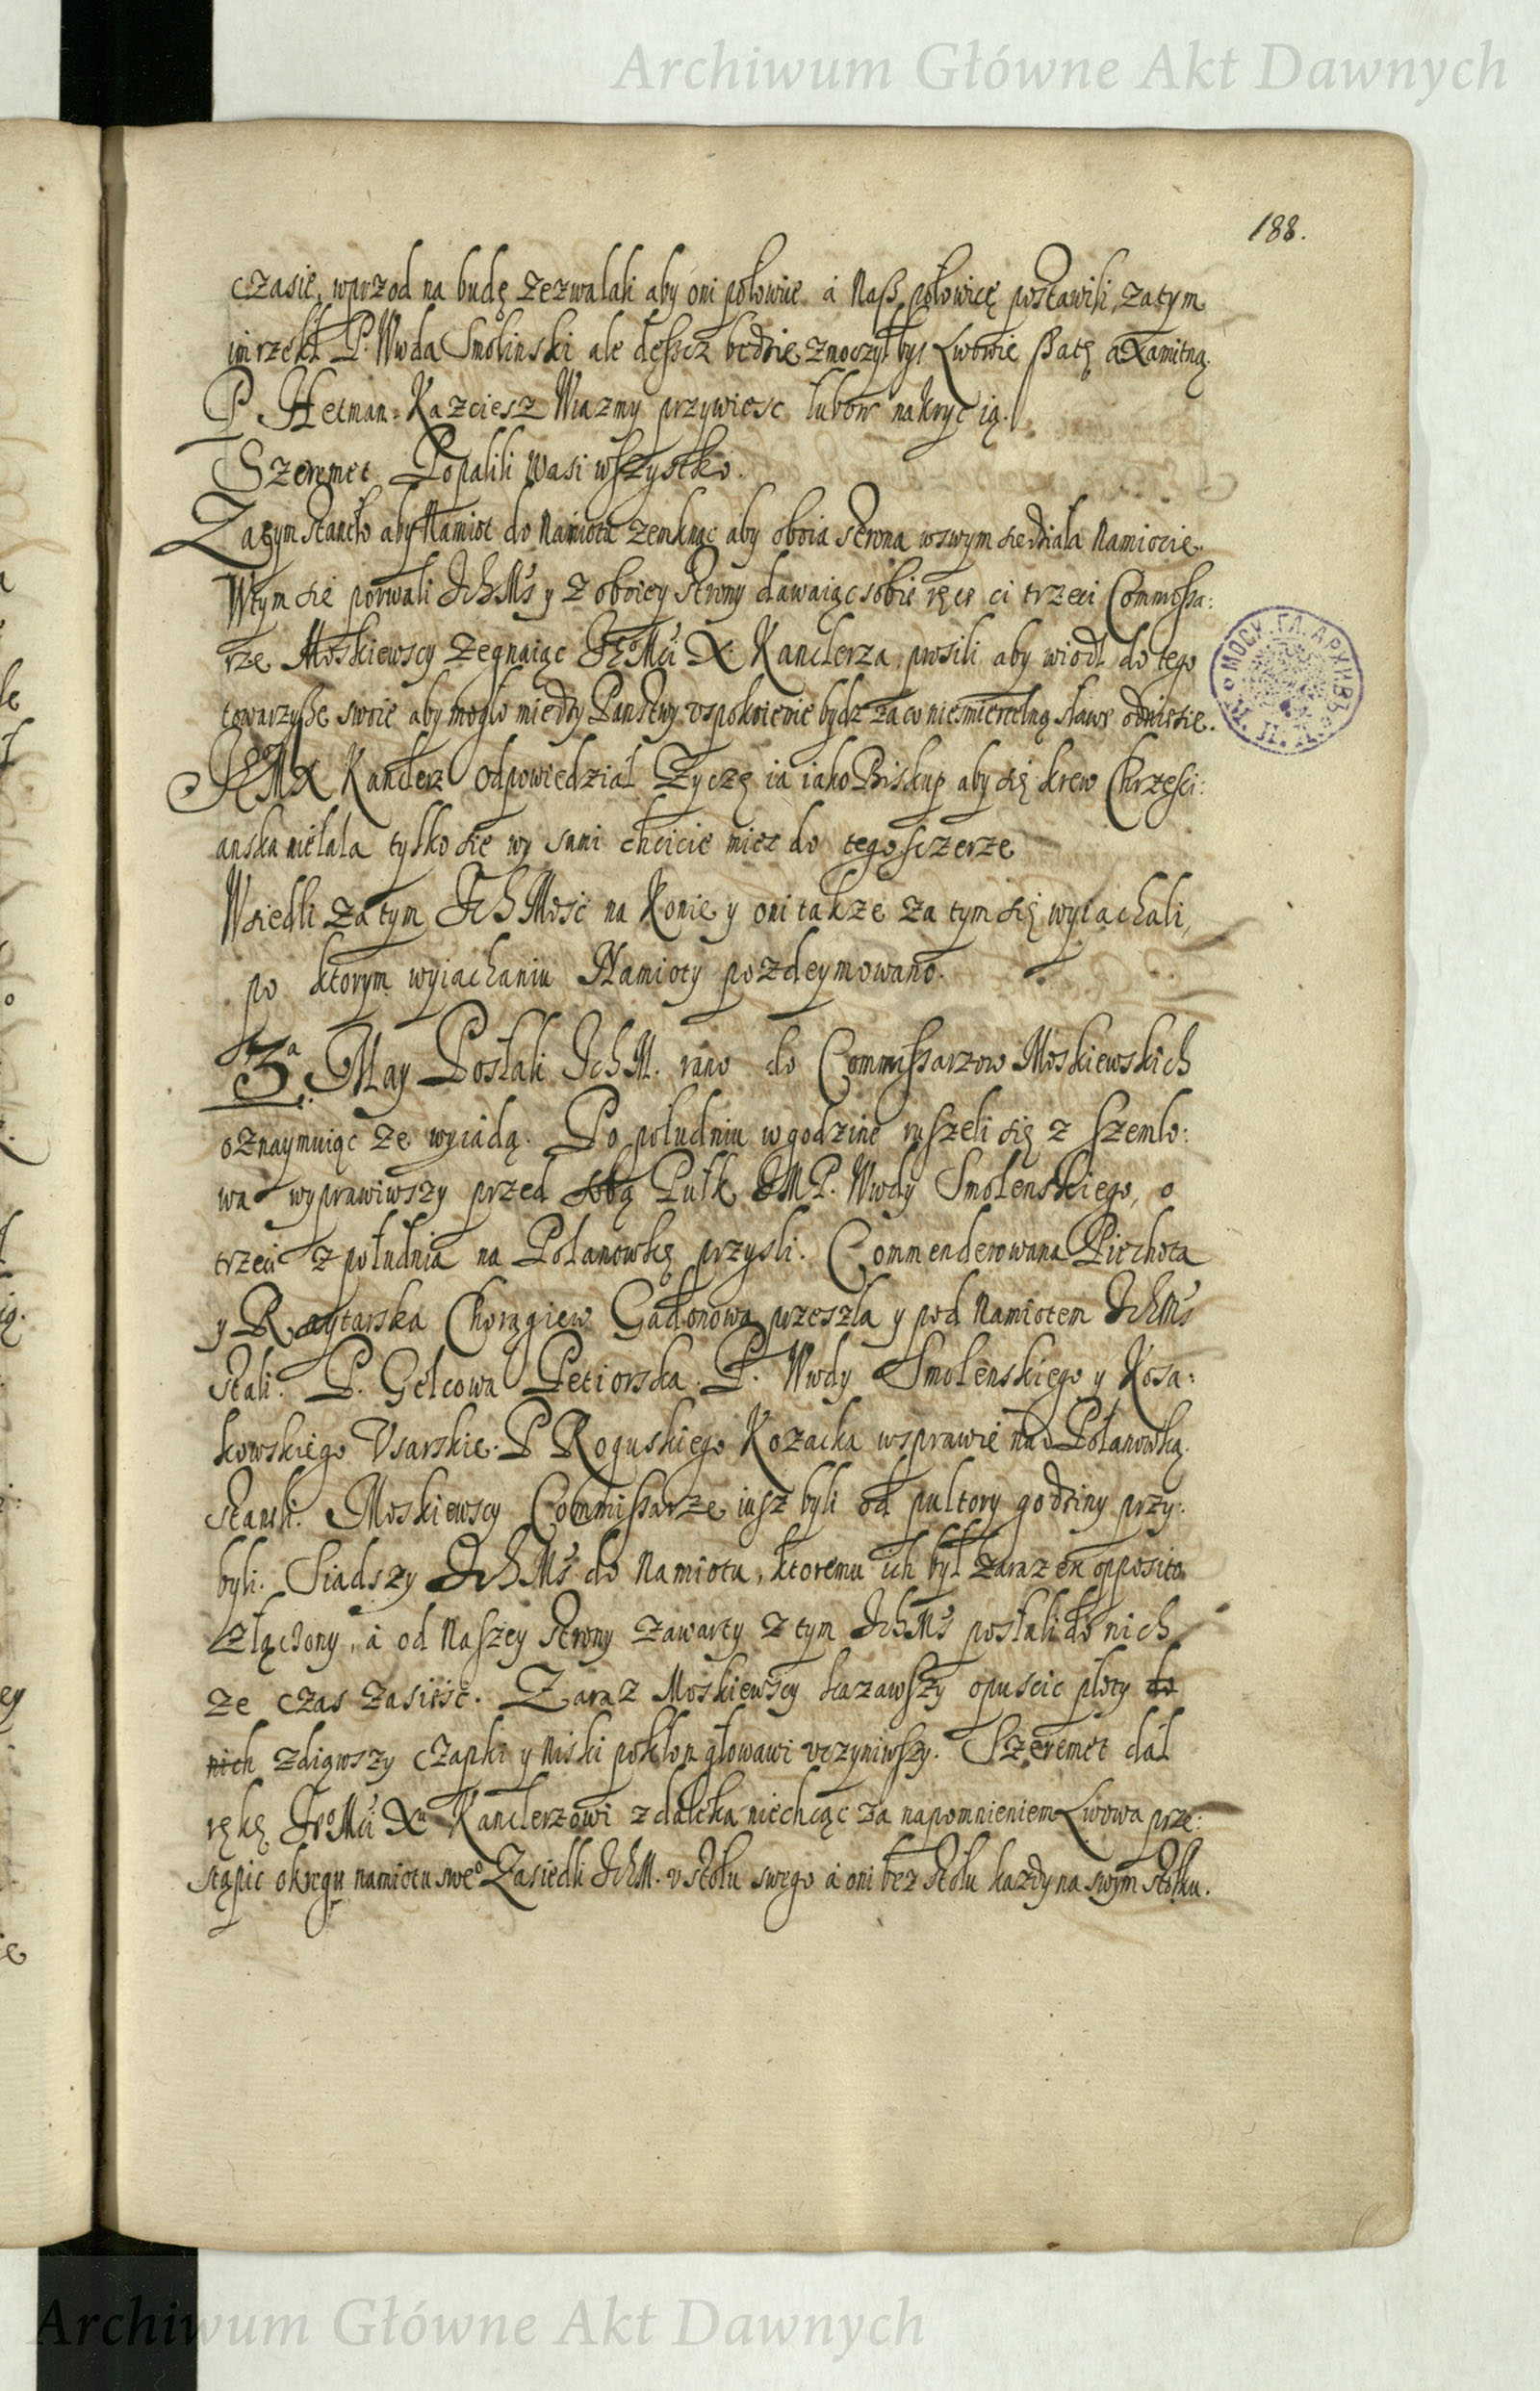 Archiwum Główne Akt Dawnych
188.
czasie, wprzod na budę zezwalali aby oni połowice à Naß połowicę postawili, zatym
im rzekł P. Wwda Smolinski ale deszcz będzie zmoczył bys Lwowie ßatę axamitną.
P. Hetman = Kazciesz Wiazmy przywiesc lubow nakryc ią.
Szeremet Popalili wasi wszystko.
Zatym stanęło aby Namiot do Namiotu zemknąc aby oboia strona wswym siedziała Namiocie.
Wtym sie porwali IchMś y z oboiey strony dawaiąc sobie ręce ci trzeci Commissa:
rze Moskiewscy zegnaiąc Je° Mći X. Kanclerza, prosili aby wiodł do tego
towarzysze swoie aby mogło miedzy Panstwy uspokoienie bydz za co niesmiertelną sławe odniesie.
JEMX Kanclerz odpowiedział Zyczę ia iako Biskup aby się krew Chrzesci:
anska nielała tylko sie wy sami chcicie miec do tego sczerze
Wsiedli zatym Ich Mość na Konie y oni takze za tym się wyiachali,
po ktorym wyiachaniu Namioty pozdeymowano.
3a. May Posłali IchM. rano do Commissarzow Moskiewskich
oznaymuiąc ze wyiadą. Po południu w godzine ruszeli się z Szemlo:
wa wyprawiwszy przed sobą Pułk JMP. Wwdy Smolenskiego, o
trzeci z południa na Polanowkę przysli. Commenderowana Piechota
y Raytarska Chorągiew Gadonowa przeszla y pod Namiotem IchMś
stali. P. Gelcowa Petiorska. P. Wwdy Smolenskiego y Kosa:
kowskiego Usarskie. P Roguskiego Kozacka wsprawie nad Polanowką
stanęli. Moskiewscy Commissarze iusz byli od pultory godziny przy:
byli. Siadszy IchMś do Namiotu, ktoremu ich był zaraz ex opposito
złączony, à od Naszey strony zawarty z tym IchMś posłali do nich
ze czas zasieść. Zaraz Moskiewscy kazawszy opuscic płoty do
nich zdiąwszy czapki y niski pokłon głowawi uczyniwszy. Szeremet dał
rękę Je°Mći Xu Kanclerzowi zdaleka niechcąc za napomnieniem Lwowa prze:
stąpic okręgu namiotu swe° Zasiedli IchM. u stołu swego à oni bez stołu kazdy na swym stołku.
МОСК. ГЛ. АРХИВЪ
Archiwum Główne Akt Dawnych